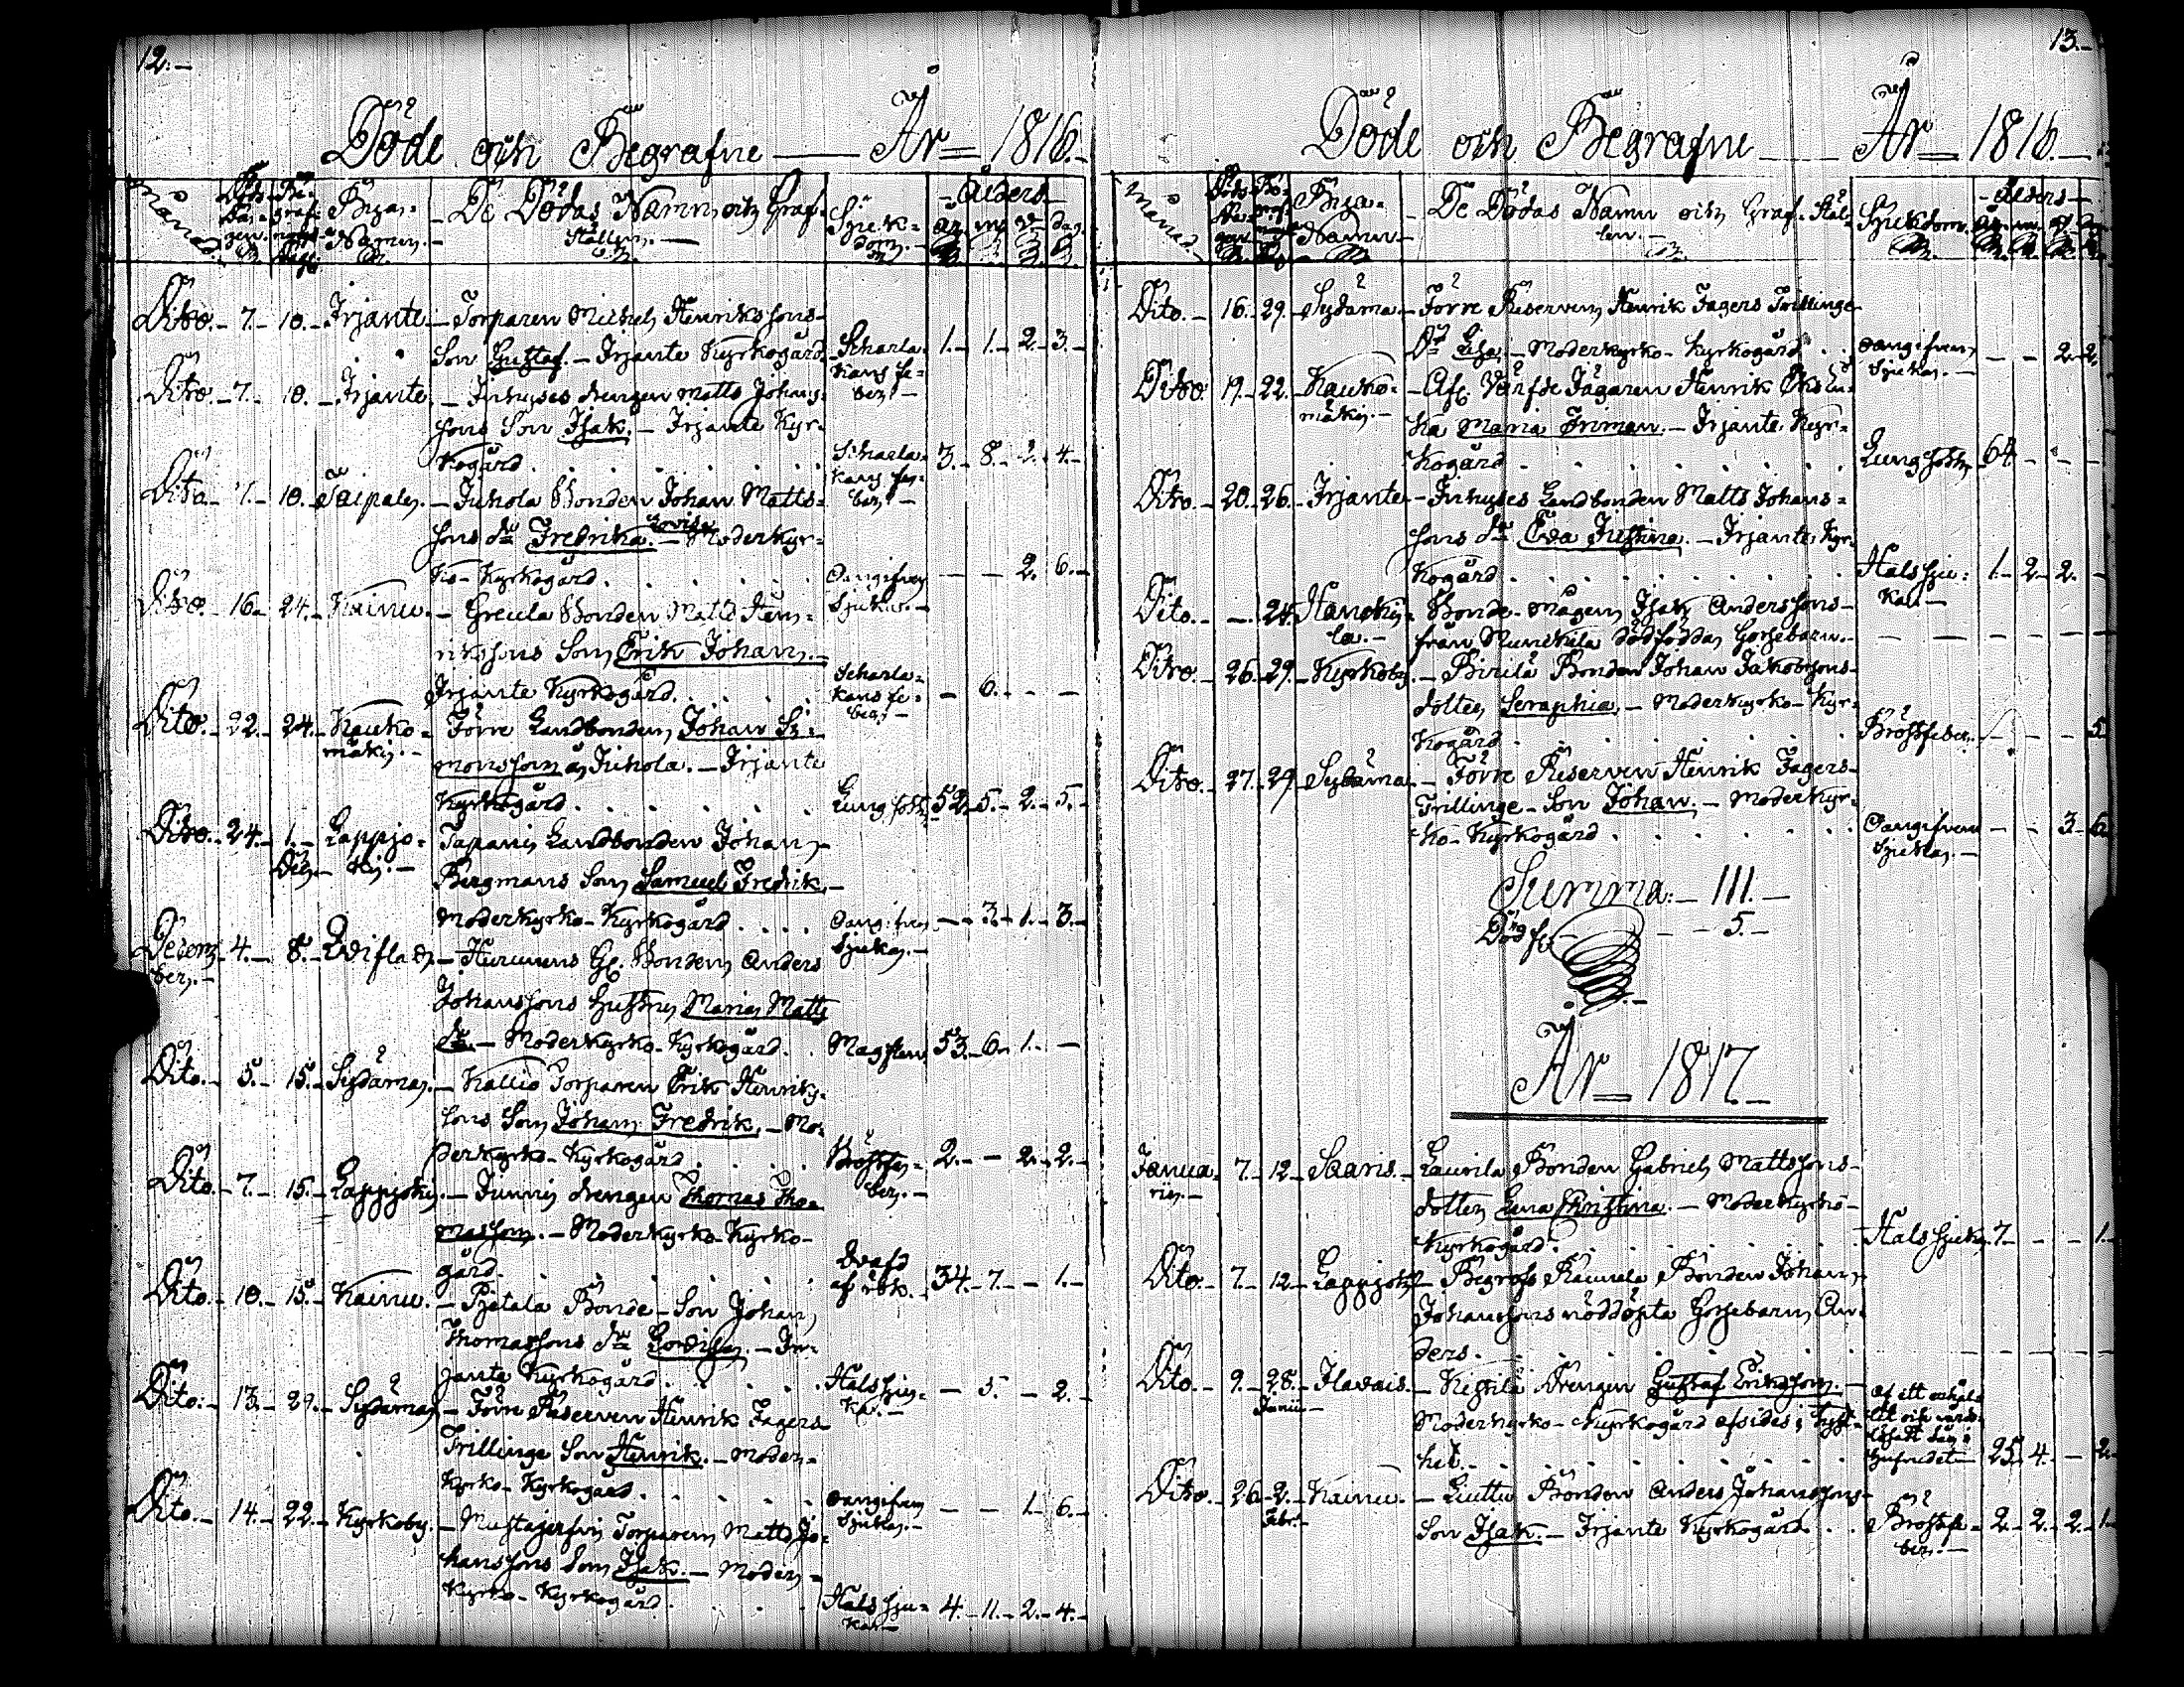 12.-
Döde och Begrafne — År 1816.-
Månad.
Döds Da-gen.
Be-graf-nings Dag.
Byar-Namn.-
De Dödas Namn, och Graf-Ställen.-
Sjuk-dom.-
Ålders
år. m. v. dag.
Dito.- 7.- 10.- Irjante.- Torparen Michels Henrikssons-
Son Gustaf.- Irjante Kyrkogård. Scharla-kans fe-ber.- 1.- 1.- 2.- 3.-
Dito.- 7.- 10.- Irjante.- Inhyses drengen Matts Johans-
sons Son Isak.- Irjante Kyr-
kogård. Scharla-kans fe-ber.- 3.- 8.- 2.- 4.-
Dito.- 7.- 10.- Taipale.- Juhola Bonden Johan Matts-
sons dr Fredrika Lovisa.- Moderkyr-
ko-Kyrkogård. Oangifven Sjukd.- — — 2. 6.-
Dito.- 16.- 24.- Kainu.- Greula Bonden Matts Hen-
rikssons Son Erik Johan.-
Irjante Kyrkogård. Scharla-kans fe-ber.- — 6.- — —
Dito.- 22.- 24.- Kauko-mäki.- Förre Landbonden Johan Si-
monsson å Juhola.- Irjante
Kyrkogård. Lungsot. 52.- 5.- 2.- 5.-
Dito.- 24.- 1.- Dec.- Lappjo-ki.- Tapani Landbonden Johan
Bergmans Son Samuel Fredrik.-
Moderkyrko-Kyrkogård. Oangifven Sjukd.- — 3.- 1.- 3.-
Decem-ber.- 4.- 8.- Ediflax.- Hurunens Gl. Bonden Anders
Johanssons Hustru Maria Matts
dr.- Moderkyrko-Kyrkogård. Magplen 53.- 6.- 1.- —
Dito.- 5.- 15.- Sydäma.- Kallio Torparen Erik Henriks-
sons Son Johan Fredrik.- Mo-
derkyrko-Kyrkogård. Bröstfe-ber.- 2.- — 2.- 2.-
Dito.- 7.- 15.- Lappjoki.- Junni drengen Thomas Tho-
masson.- Moderkyrko-Kyrko-
gård. Qvafd af rök.- 34.- 7.- — 1.-
Dito.- 10.- 15.- Kainu.- Pjetala Bonde-Son Johan
Thomassons dr Lovisa.- Ir-
jante Kyrkogård. Halssju-ka.- — 5.- — 2.-
Dito.- 13.- 29.- Sydäma.- Förre Reserven Henrik Fagers
Trillinge Son Henrik.- Moder-
kyrko-Kyrkogård. Oangifven Sjukd.- — — 1.- 6.-
Dito.- 14.- 22.- Kyrkoby.- Torparen Matts Jo-
hanssons Son Isak.- Moder-
kyrko-Kyrkogård. Halssju-kan.- 4.- 11.- 2.- 4.-
13.-
Döde och Begrafne — År 1816.-
Månad.
Döds Da-gen.
Be-graf-nings Dag.
Bya-Namn.-
De Dödas Namn och Graf-Stäl-len.-
Sjukdom.-
Ålders
år. m. v. d.
Dito.- 16.- 29.- Sydäma.- Förre Reserven Henrik Fagers Trillinge
Dr Lisa.- Moderkyrko-Kyrkogård. Oangifven Sjukd.- — — 2.- 2.
Dito.- 19.- 22.- Kauko-mäki.- Afl. Värfde Jägaren Henrik Öks En-
ka Maria Friman.- Irjante Kyr-
kogård. Lungsot 64.- — — —
Dito.- 20.- 26.- Irjante.- Inhyses Landbonden Matts Johans-
sons dr Eva Justina.- Irjante Kyr-
kogård. Halssju-kan.- 1.- 2.- 2. —
Dito.- — 24. Bonde-Mågen Isak Anderssons-
från Munickila dödfödda Gossebarn.-
Dito.- 26.- 29.- Kyrkoby.- Birilä Bonden Johan Jakobssons-
dotter Seraphia.- Moderkyrko-Kyr-
kogård. Bröstfeber.- — — — 5
Dito.- 27.- 29.- Sydäma.- Förre Reserven Henrik Fagers-
Trillinge-Son Johan.- Moderkyr-
ko-Kyrkogård. Oangifven Sjukd.- — — 3.- 6.
Summa:- 111.-
Dödf. — 5.-
År 1817.-
Janua-rii.- 7.- 12.- Saaris.- Laurila Bonden Gabriel Mattssons-
dotter Lena Christina.- Moderkyrko-
Kyrkogård. Halssjuk. 7.- — — 1.-
Dito.- 7.- 12.- Lappjoki.- Begrofs Raunela Bonden Johan
Johanssons nöddöpta Gossebarn An-
ders.
Dito.- 9.- 28. Junii.- Ilavais.- Kestilä Drengen Gustaf Eriksson.-
Moderkyrko-Kyrkogård afsides i Tyst-
het. 25.- 4.- — 2.-
Dito.- 26.- 2.- Febr.- Kainu.- Liuttu Bonden Anders Johanssons-
Son Isak.- Irjante Kyrkogård. Bröstfe-ber.- 2.- 2.- 2.- 1.-